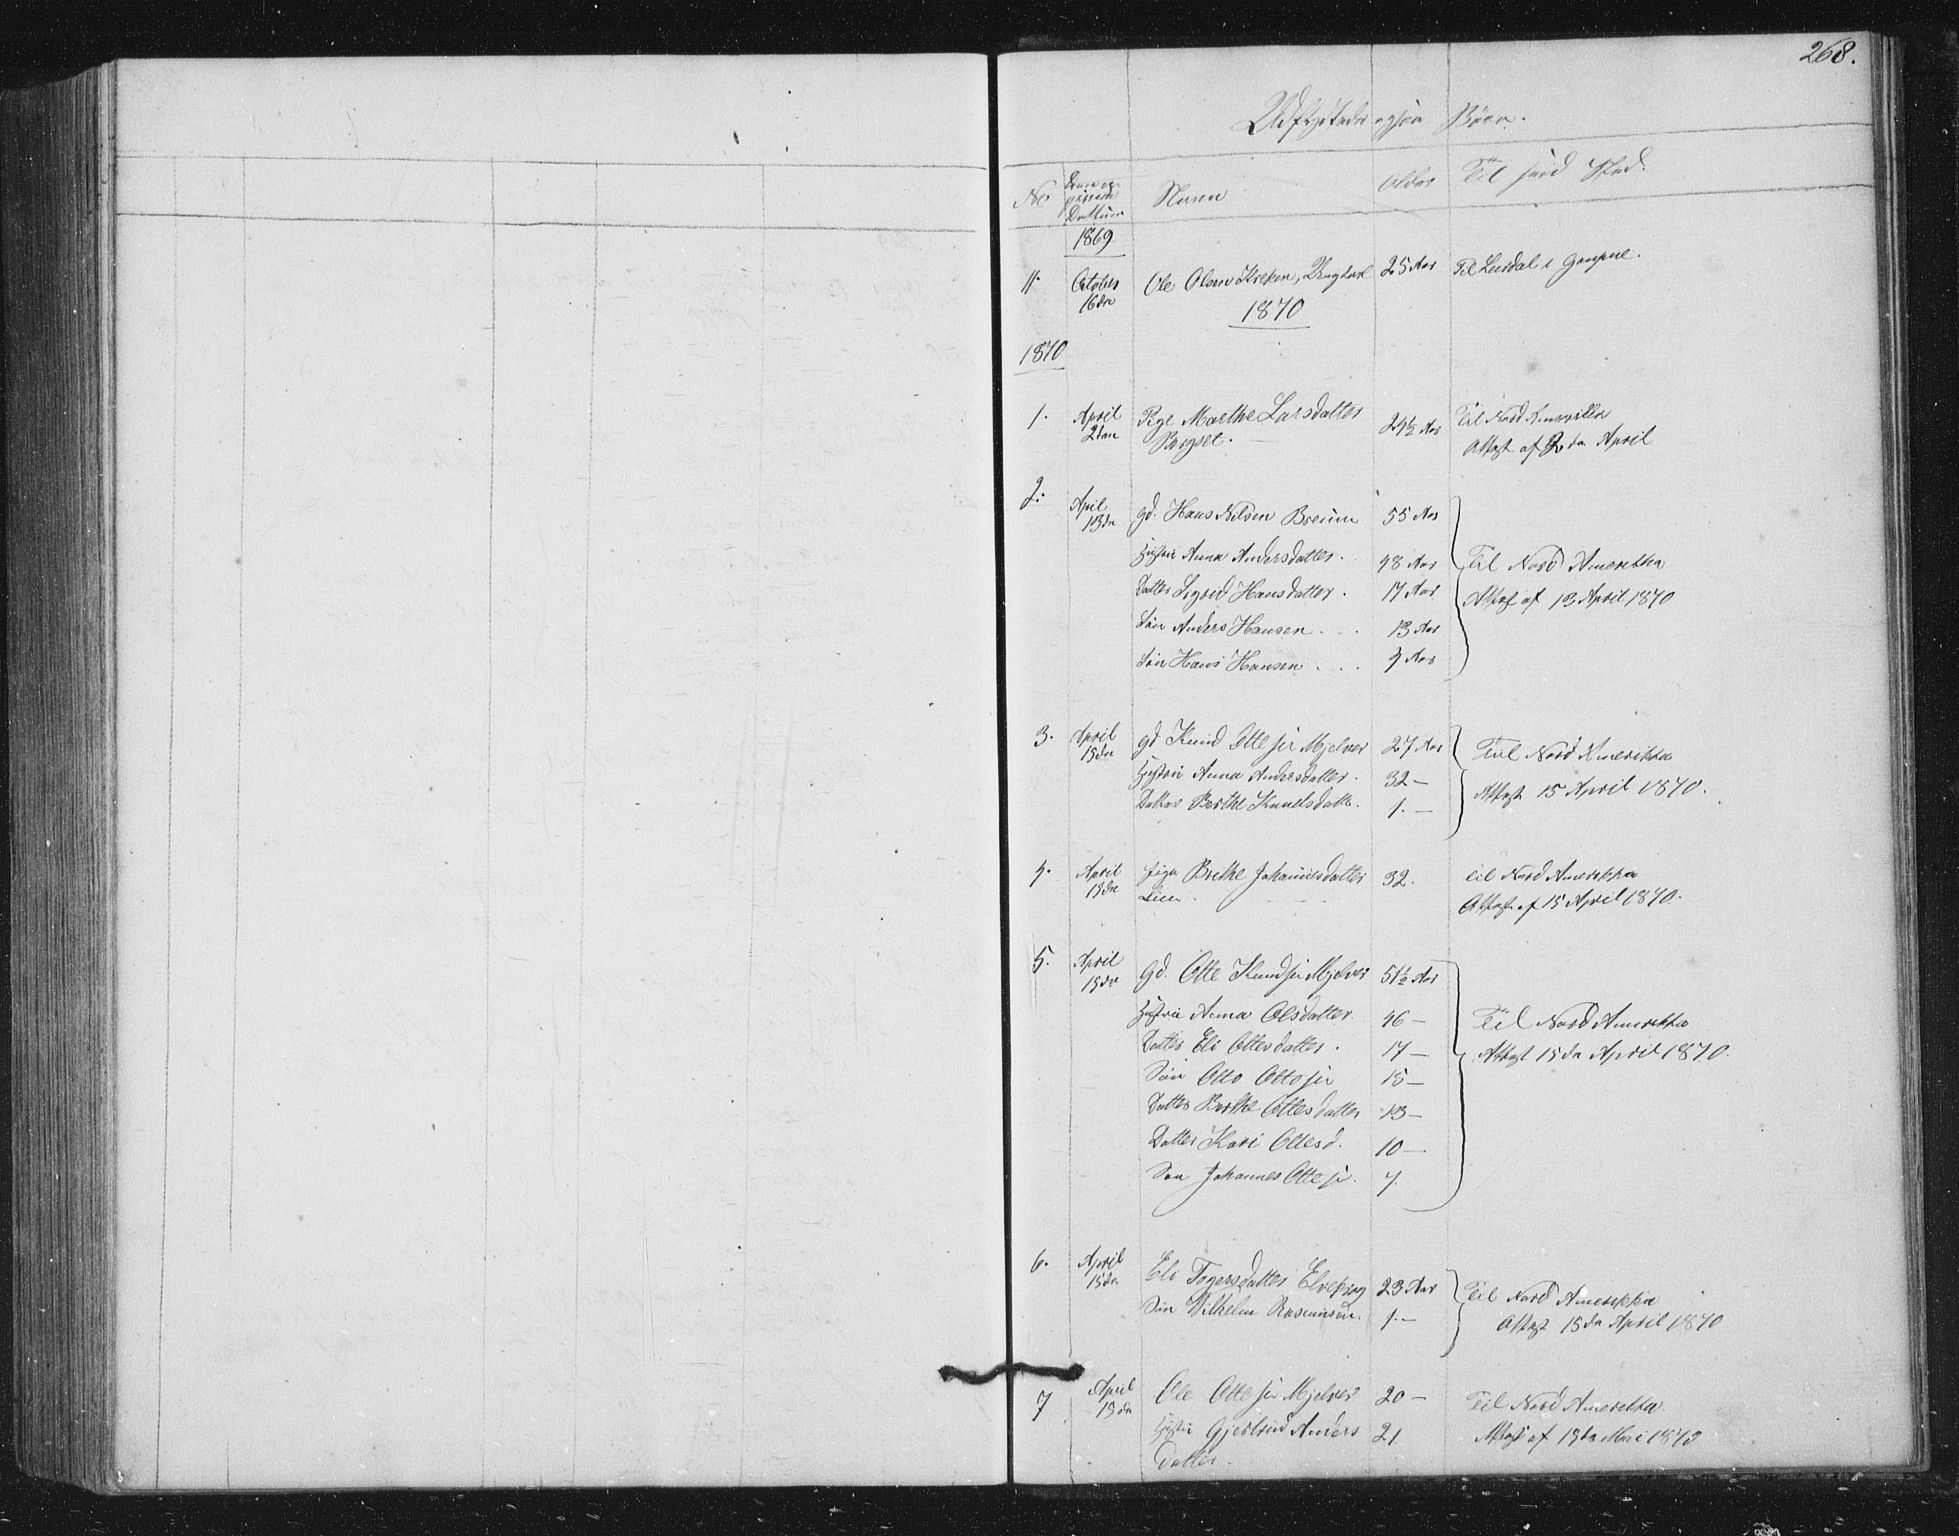 268.
Udflyttede ogsaa Børn.
No
Datum
Navn
Alder
Til hvad Sted.
1869
11. October 16de Ole Olsen Kreken, Ungkarl 25 Aar Til Leirdal i Gaupne.
1870
1870
1. April 2den Pige Marthe Larsdatter 24½ Aar Til Nord Amerikka
Bergset. Attest af 2den April
2. April 13de gd. Hans Nilsen Breum 55 Aar
Hustru Anna Andersdatter. 48 Aar Til Nord Amerikka
Datter Sigrid Hansdatter. 17 Aar Attest af 13 April 1870
Søn Anders Hansen 13 Aar
Søn Hans Hansen 9 Aar
3. April 15de gd Knud Ottesen Mjelver 27 Aar Til Nord Amerikka
Hustru Anna Andersdatter. 32 —
Datter Berthe Knudsdatt. 1. — Attest 15 April 1870.
4. April 15de Pige Brithe Johannesdatter 32. til Nord Amerikka
Lien. Attest af 15 April 1870.
5. April 15de Gd. Otte Knudsen Mjelver 51½ Aar
Hustru Anna Olsdatter. 46 — Til Nord Amerikka
Datter Eli Ottesdatter. 17 — Attest 15de April 1870.
Søn Otto Ottosen 15 —
Datter Berthe Ottesdatter 13 —
Datter Kari Ottesd. 10 —
Søn Johannes Ottesen. 7.
6. April 15de Eli Togersdatter 23 Aar Til Nord Amerikka
Søn Wilhelm Rasmussen. 1. — Attest 15de April 1870
7 April 15de Ole Ottesen Mjelver 20 — Til Nord Amerikka.
Hustru Gjertrud Anders 21 Attest af
datter.